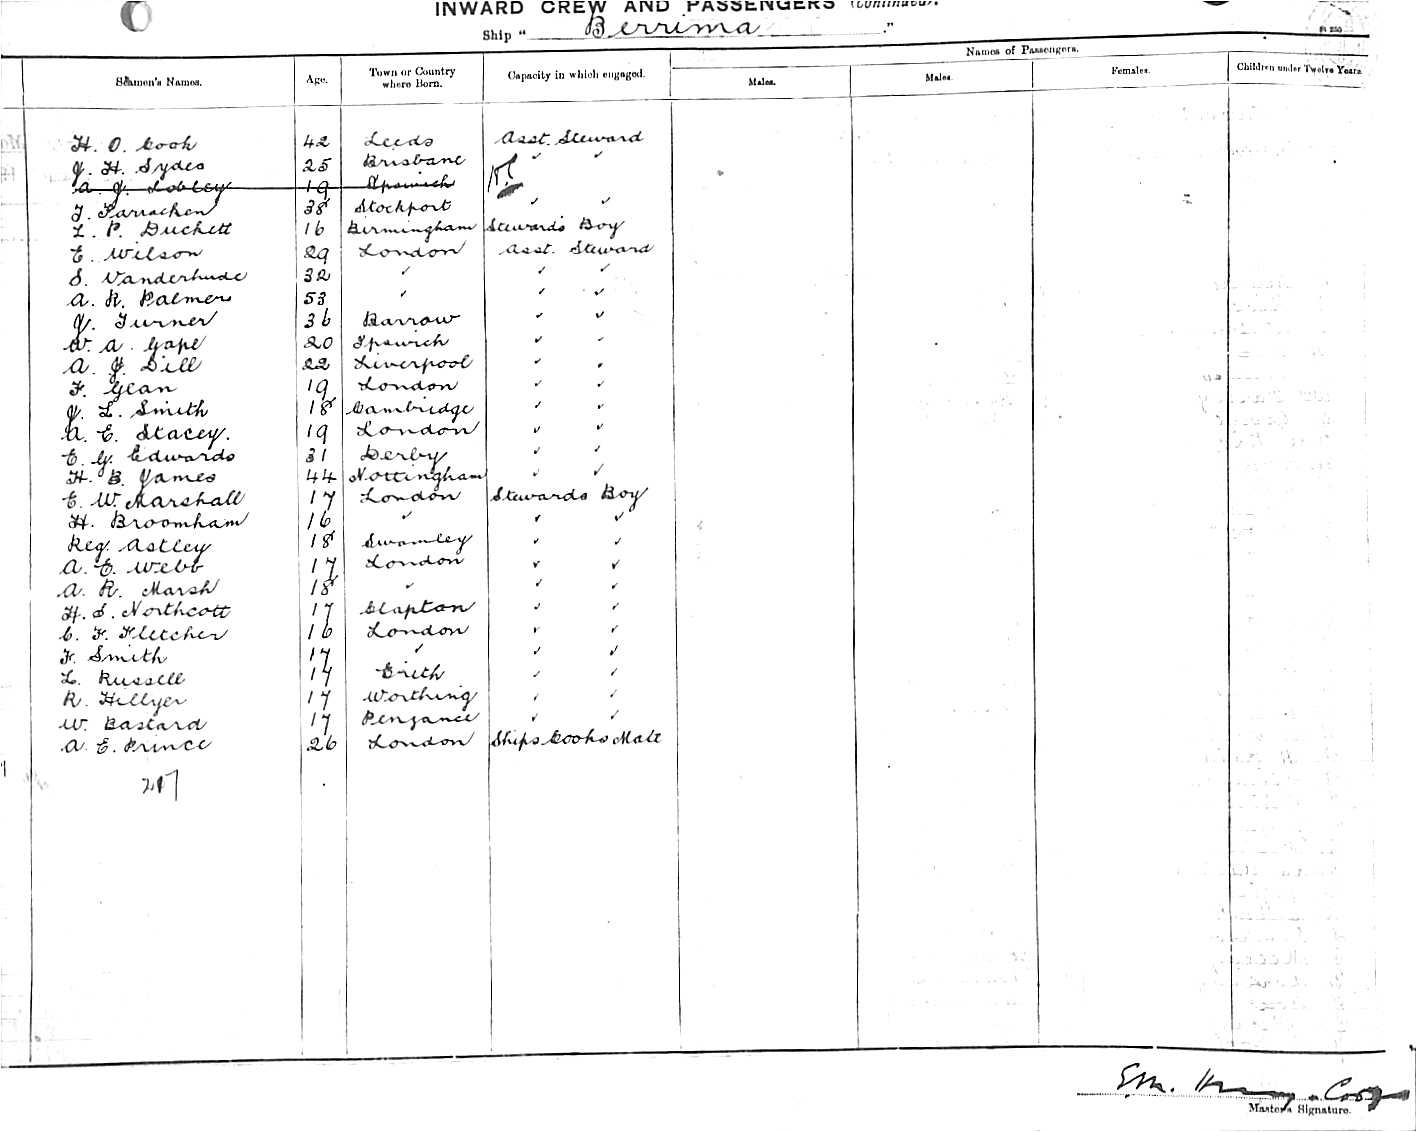 INWARD CREW AND PASSENGERS (Continued).
Ship " Berrima ."
Names of Passengers.
Seamen's Names. Age. Town or Country where Born. Capacity in which engaged. Males. Males. Females. Children under Twelve Years
H. O. Cook 42 Leeds Asst. Steward
J. H. Sydes 25 Brisbane " "
A. J. Lobley 19 Ipswich
J. Parrachen 38 Stockport " "
L. P. Duckett 16 Birmingham Stewards Boy
E. Wilson 29 London Asst. Steward
S. Vanderhude 32 " " "
A. R. Palmer 53 " " "
J. Turner 36 Barrow " "
W. A. Gape 20 Ipswich " "
A. J. Dill 22 Liverpool " "
F. Glan 19 London " "
J. L. Smith 18 Cambridge " "
A. E. Stacey. 19 London " "
E. G. Edwards 31 Derby " "
H. B. James 44 Nottingham " "
E. W. Marshall 17 London Stewards Boy
H. Broomham 16 " " "
Reg. Astley 18 Swamley " "
A. E. Webb 17 London " "
A. R. Marsh 18 " " "
H. S. Northcott 17 Clapton " "
C. F. Fletcher 16 London " "
F. Smith 17 " " "
L. Russell 17 Erith " "
R. Hillyer 17 Worthing " "
W. Bastard 17 Penzance " "
A. E. Prince 26 London Ships Cooks Mate
Master's Signature.